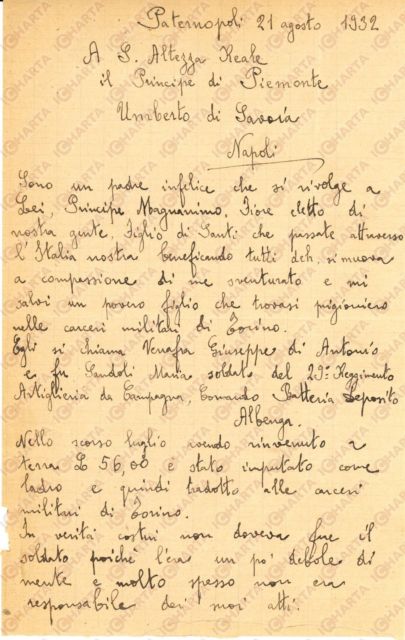 Paternopoli 21 agosto 1932
A S. Altezza Reale
il Principe di Piemonte
Umberto di Savoia
Napoli
Sono un padre infelice che si rivolge a
Lei, Principe Magnanimo, Fiore eletto di
nostra gente. Figlio di Santi che passate attraverso
l'Italia nostra beneficando tutti deh, si muova
a compassione di me sventurato e mi
salvi un povero figlio che trovasi prigioniero
nelle carceri militari di Torino.
Egli si chiama Venafra Giuseppe di Antonio
e fu Sandoli Maria soldato del 29º Reggimento
Artiglieria da Campagna, Comando Batteria Deposito
Albenga.
Nello scorso luglio avendo rinvenuto a
terra L 56,00 è stato imputato come
ladro e quindi tradotto alle carceri
militari di Torino.
In verità costui non doveva fare il
soldato poichè l'era un po' debole di
mente e molto spesso non era
responsabile dei suoi atti.